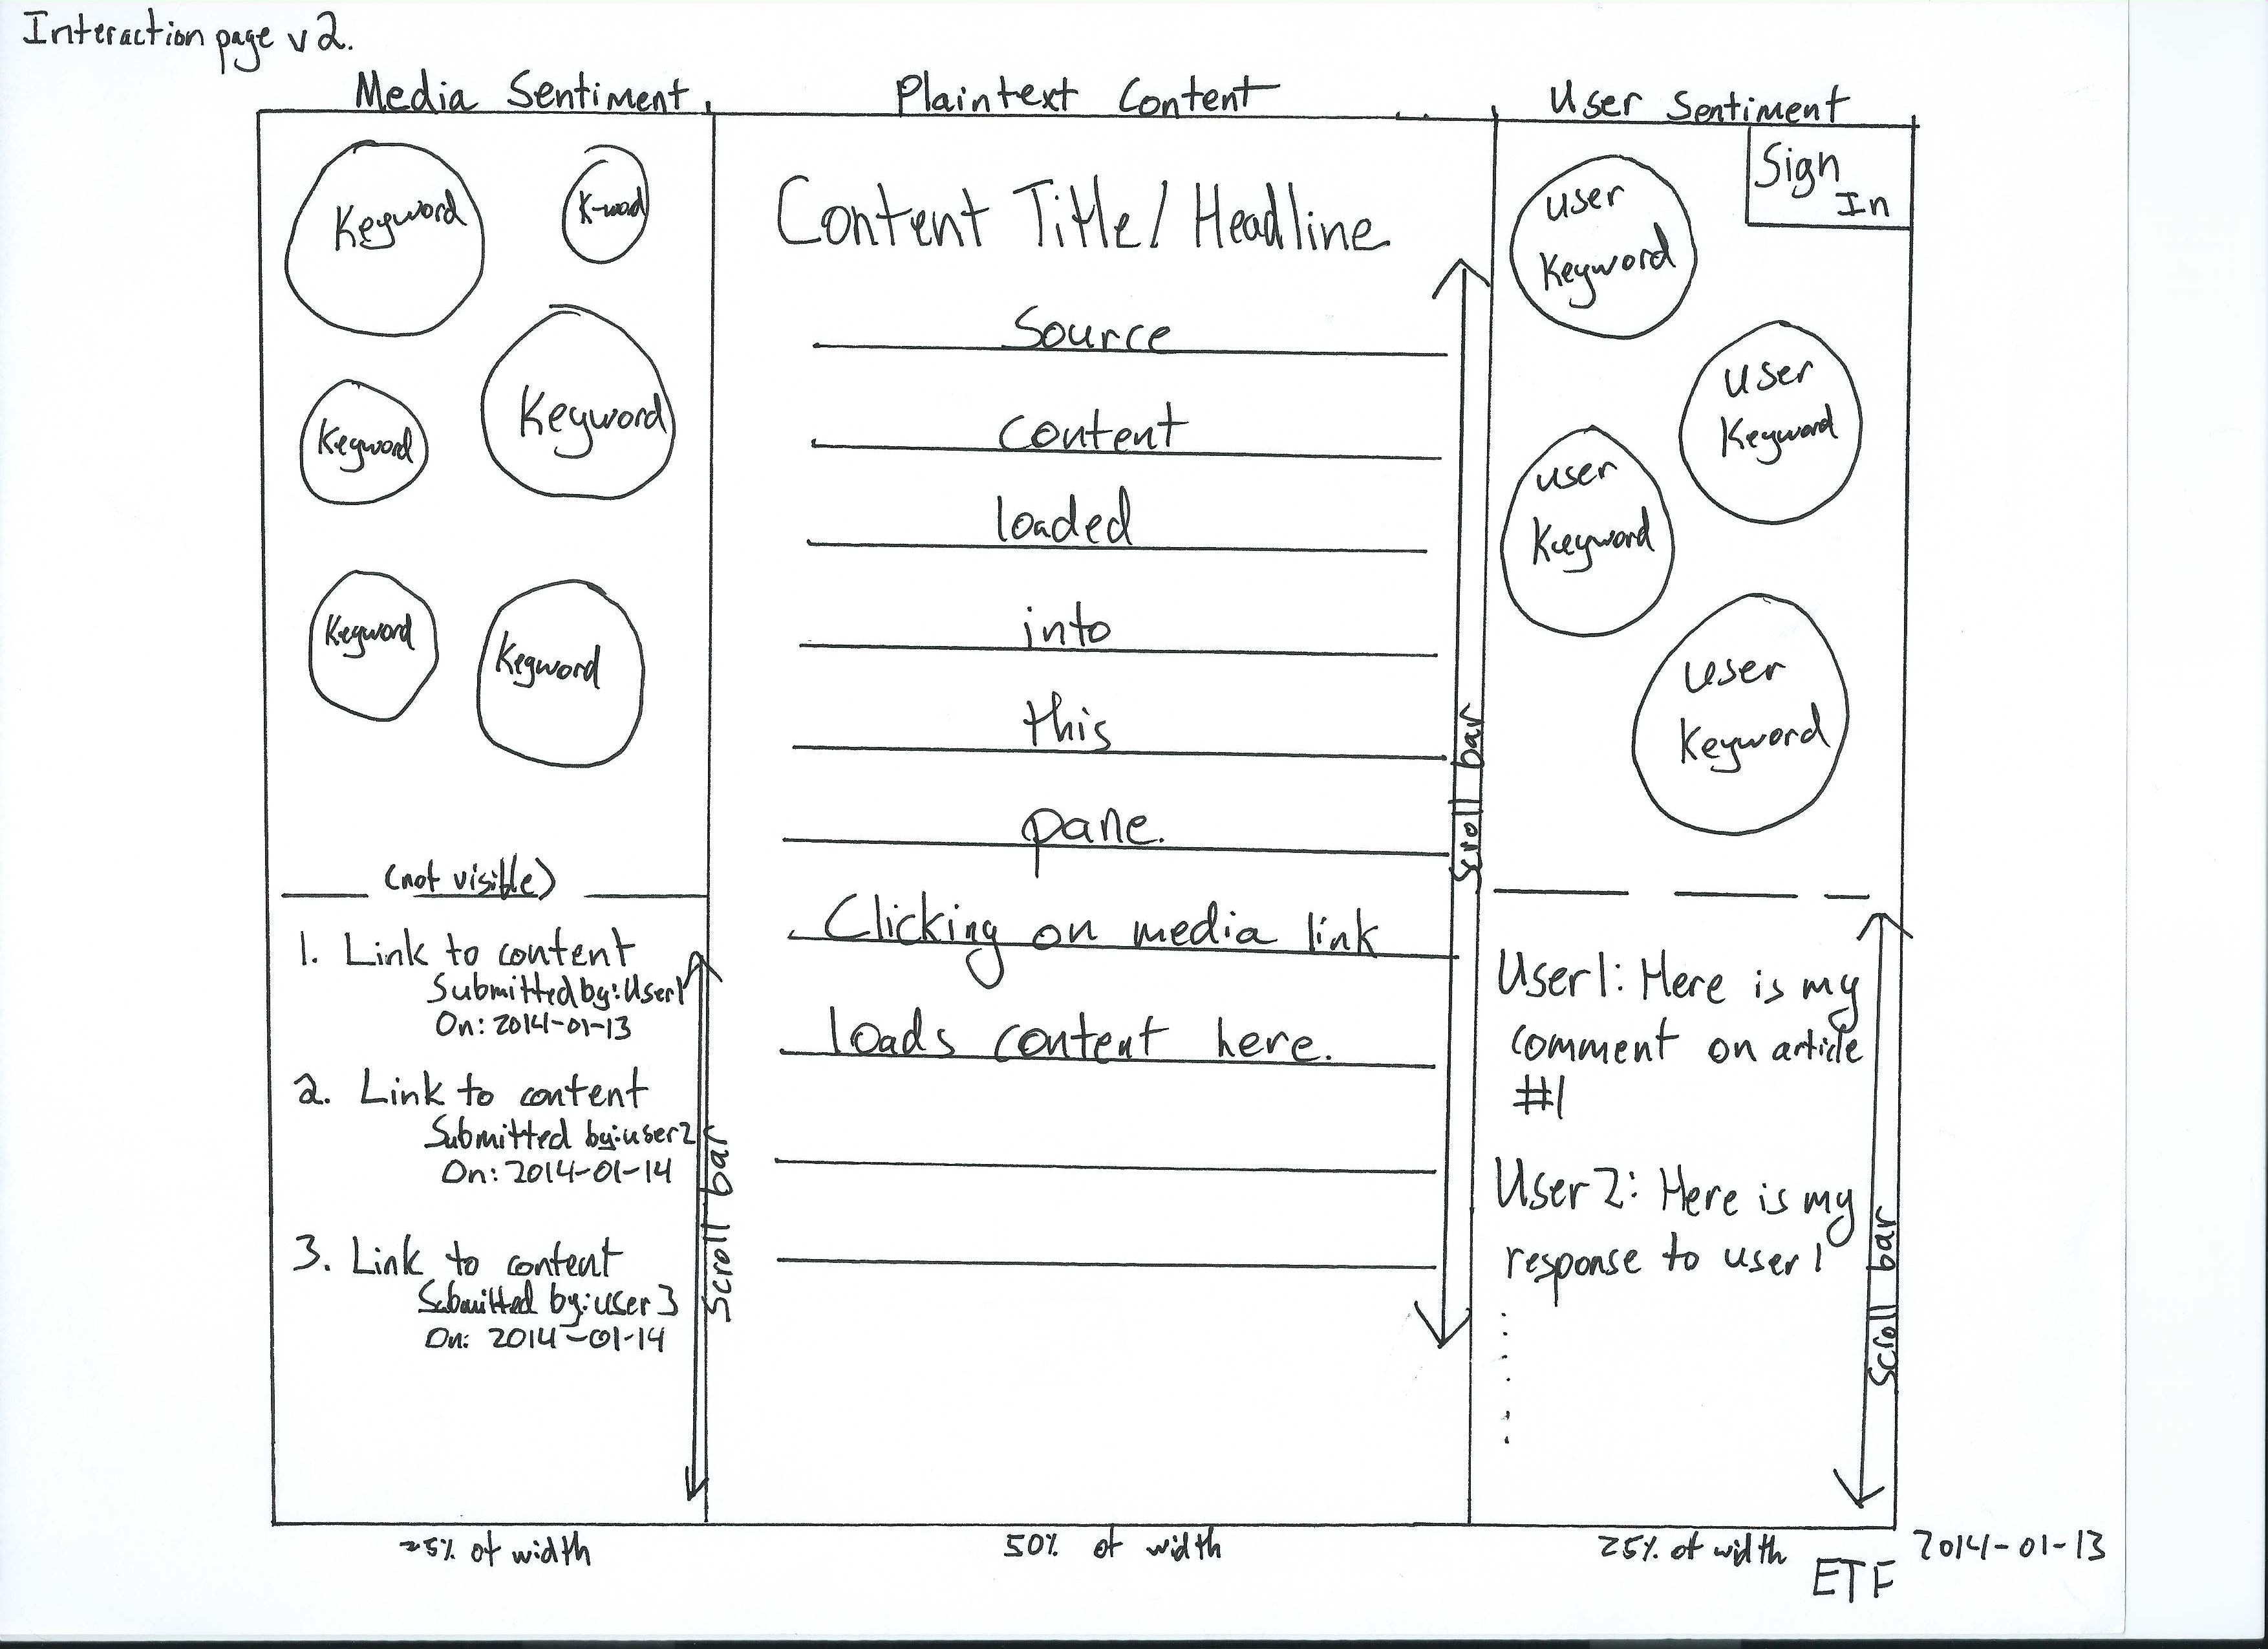 Interaction page v2.
Media Sentiment
Plaintext Content
User Sentiment
Keyword
K-word
Keyword
Keyword
Keyword
Keyword
(not visible)
1. Link to content
Submitted by: User1
On: 2014-01-13
2. Link to content
Submitted by: user2
On: 2014-01-14
3. Link to content
Submitted by: user3
On: 2014-01-14
Scroll bar
Content Title/Headline
Source
content
loaded
into
this
pane.
Clicking on media link
loads content here.
Scroll bar
Sign
In
user
Keyword
user
Keyword
user
Keyword
user
Keyword
User1: Here is my
comment on article
#1
User2: Here is my
response to user1
Scroll bar
25% of width
50% of width
25% of width
2014-01-13
ETF